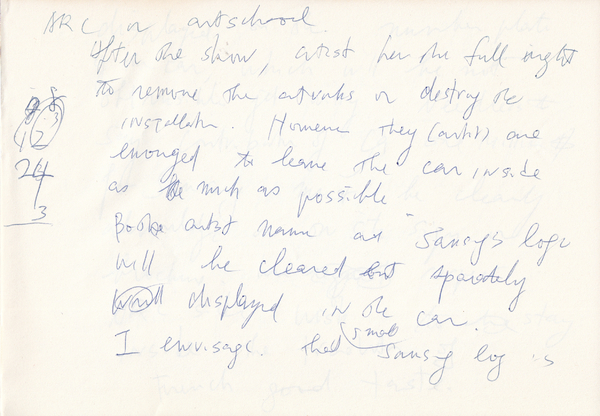 ARC or artschool.
After the show, artist has the full right
to remove the artworks or destroy the
installation. However they (artist) are
to leave the car inside
as much as possible
artist name and Sanyg's logo
will be cleared but sparately
displayed in the car.
I envisage. that small Sansyg log is
24
3